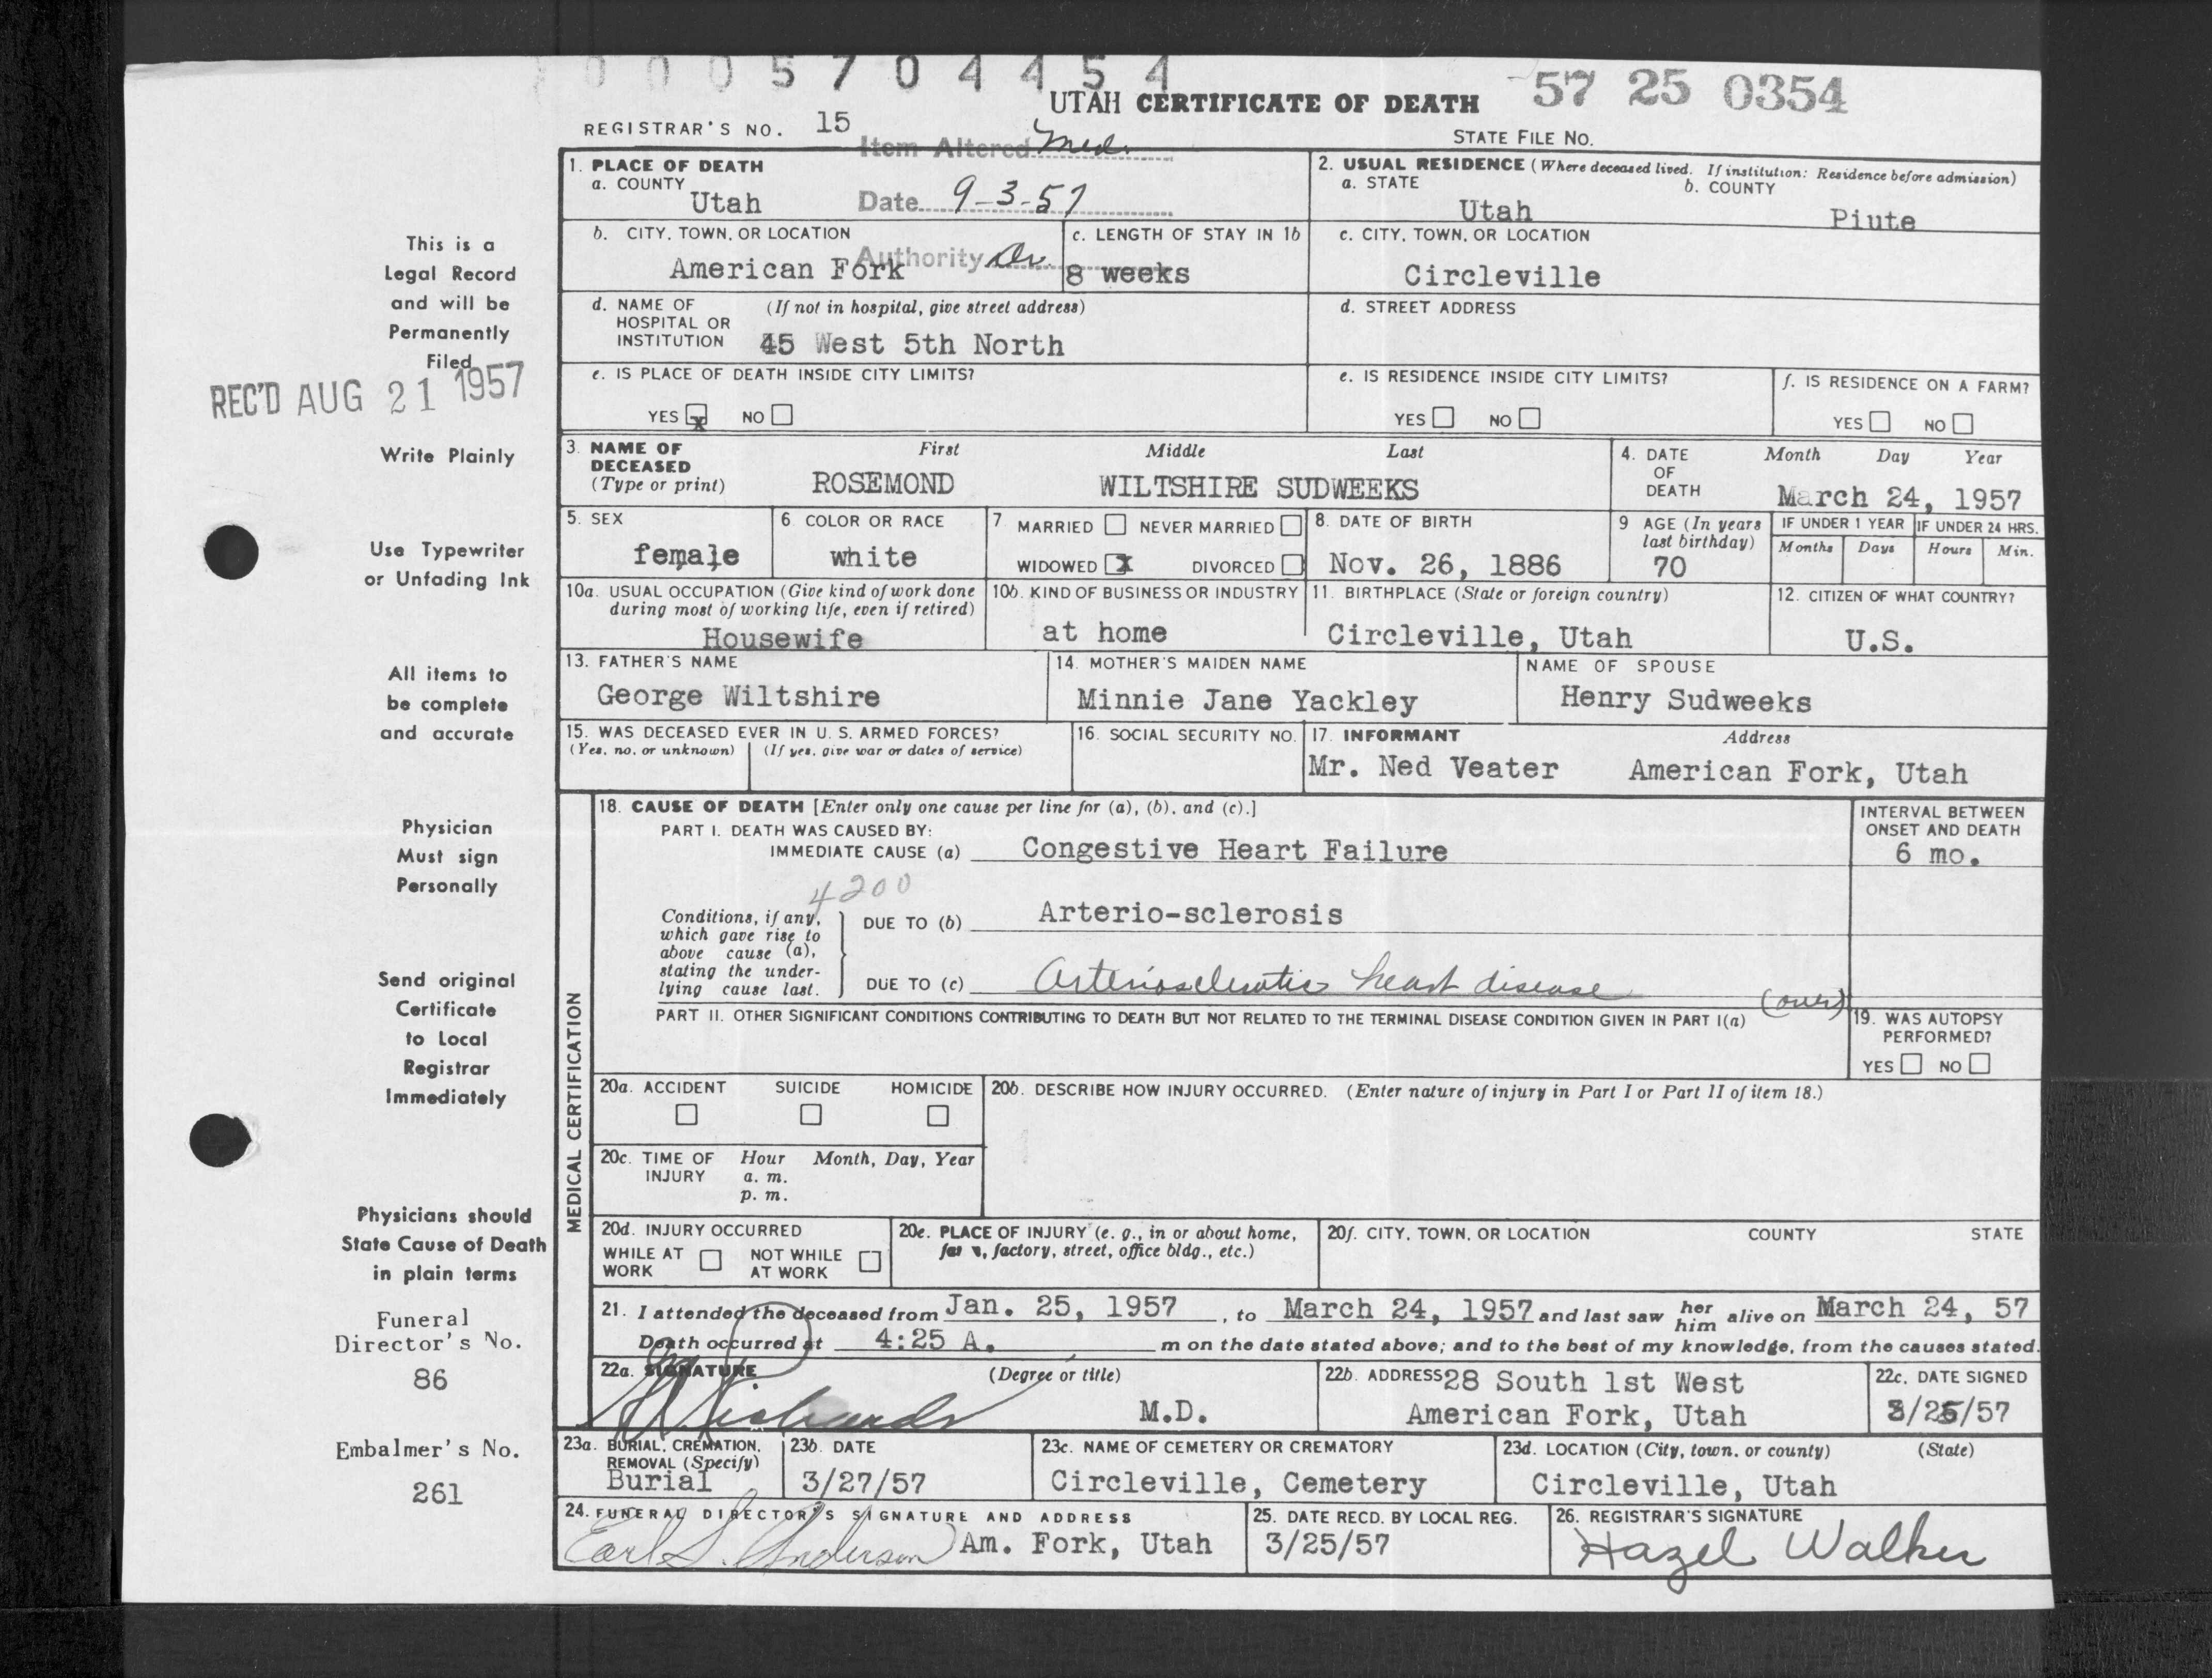 0005704454
UTAH CERTIFICATE OF DEATH
57 25 0354
REGISTRAR'S NO. 15
STATE FILE NO.
Item Altered Med.
Date 9-3-57
Authority Dr.
This is a
Legal Record
and will be
Permanently
Filed
REC'D AUG 21 1957
Write Plainly
Use Typewriter
or Unfading Ink
All items to
be complete
and accurate
Physician
Must sign
Personally
Send original
Certificate
to Local
Registrar
Immediately
Physicians should
State Cause of Death
in plain terms
Funeral
Director's No.
86
Embalmer's No.
261
1. PLACE OF DEATH
a. COUNTY
Utah
2. USUAL RESIDENCE (Where deceased lived. If institution: Residence before admission)
a. STATE
Utah
b. COUNTY
Piute
b. CITY, TOWN, OR LOCATION
American Fork
c. LENGTH OF STAY IN 1b
8 weeks
c. CITY, TOWN, OR LOCATION
Circleville
d. NAME OF HOSPITAL OR INSTITUTION
(If not in hospital, give street address)
45 West 5th North
d. STREET ADDRESS
e. IS PLACE OF DEATH INSIDE CITY LIMITS?
YES x NO
e. IS RESIDENCE INSIDE CITY LIMITS?
YES NO
f. IS RESIDENCE ON A FARM?
YES NO
3. NAME OF DECEASED
(Type or print)
First Middle Last
ROSEMOND WILTSHIRE SUDWEEKS
4. DATE OF DEATH
Month Day Year
March 24, 1957
5. SEX
female
6. COLOR OR RACE
white
7. MARRIED NEVER MARRIED
WIDOWED X DIVORCED
8. DATE OF BIRTH
Nov. 26, 1886
9 AGE (In years last birthday)
70
IF UNDER 1 YEAR
Months Days
IF UNDER 24 HRS.
Hours Min.
10a. USUAL OCCUPATION (Give kind of work done during most of working life, even if retired)
Housewife
10b. KIND OF BUSINESS OR INDUSTRY
at home
11. BIRTHPLACE (State or foreign country)
Circleville, Utah
12. CITIZEN OF WHAT COUNTRY?
U.S.
13. FATHER'S NAME
George Wiltshire
14. MOTHER'S MAIDEN NAME
Minnie Jane Yackley
NAME OF SPOUSE
Henry Sudweeks
15. WAS DECEASED EVER IN U. S. ARMED FORCES?
(Yes, no, or unknown) (If yes, give war or dates of service)
16. SOCIAL SECURITY NO.
17. INFORMANT Address
Mr. Ned Veater American Fork, Utah
MEDICAL CERTIFICATION
18. CAUSE OF DEATH [Enter only one cause per line for (a), (b), and (c).]
PART I. DEATH WAS CAUSED BY:
IMMEDIATE CAUSE (a) Congestive Heart Failure
INTERVAL BETWEEN ONSET AND DEATH
6 mo.
4200
Conditions, if any,
which gave rise to
above cause (a),
stating the under-
lying cause last.
DUE TO (b) Arterio-sclerosis
DUE TO (c) Arteriosclerotic heart disease
(over)
PART II. OTHER SIGNIFICANT CONDITIONS CONTRIBUTING TO DEATH BUT NOT RELATED TO THE TERMINAL DISEASE CONDITION GIVEN IN PART I(a)
19. WAS AUTOPSY PERFORMED?
YES NO
20a. ACCIDENT SUICIDE HOMICIDE
20b. DESCRIBE HOW INJURY OCCURRED. (Enter nature of injury in Part I or Part II of item 18.)
20c. TIME OF INJURY
Hour Month, Day, Year
a. m.
p. m.
20d. INJURY OCCURRED
WHILE AT WORK NOT WHILE AT WORK
20e. PLACE OF INJURY (e. g., in or about home,
factory, street, office bldg., etc.)
20f. CITY, TOWN, OR LOCATION COUNTY STATE
21. I attended the deceased from Jan. 25, 1957, to March 24, 1957 and last saw her him alive on March 24, 57
Death occurred at 4:25 A. m on the date stated above; and to the best of my knowledge, from the causes stated.
22a. SIGNATURE (Degree or title)
Richards M.D.
22b. ADDRESS 28 South 1st West
American Fork, Utah
22c. DATE SIGNED
3/25/57
23a. BURIAL, CREMATION, REMOVAL (Specify)
Burial
23b. DATE
3/27/57
23c. NAME OF CEMETERY OR CREMATORY
Circleville, Cemetery
23d. LOCATION (City, town, or county) (State)
Circleville, Utah
24. FUNERAL DIRECTOR'S SIGNATURE AND ADDRESS
Earl S. Anderson Am. Fork, Utah
25. DATE RECD. BY LOCAL REG.
3/25/57
26. REGISTRAR'S SIGNATURE
Hazel Walker